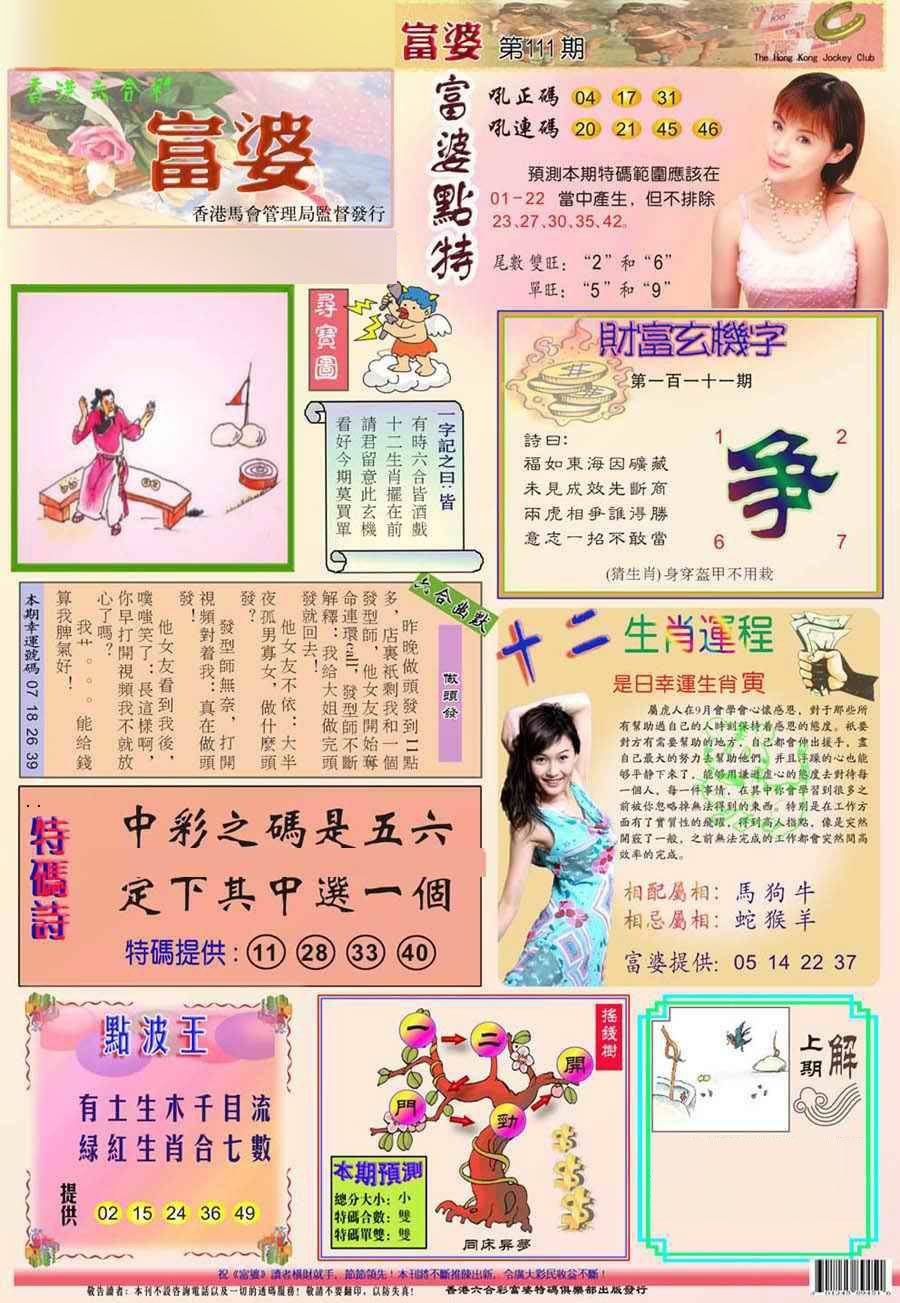 富婆 第111期
The Hong Kong Jockey Club
香港六合彩
富婆
香港馬會管理局監督發行
富婆點特
吼正碼 04 17 31
吼連碼 20 21 45 46
預測本期特碼範圍應該在
01-22 當中產生，但不排除
23、27、30、35、42。
尾數雙旺：“2”和“6”
單旺：“5”和“9”
尋寶圖
一字記之曰：皆
有時六合皆酒戲
十二生肖擺在前
請君留意此玄機
看好今期莫買單
財富玄機字
第一百一十一期
詩曰：
福如東海因礦藏
未見成效先斷商
兩虎相爭誰得勝
意志一招不敢當
爭
1 2
6 7
(猜生肖)身穿盔甲不用栽
六合幽默
做頭發
昨晚做頭發到11點
多，店裏衹剩我和一個
發型師，他女友開始奪
命連環call，發型師不斷
解釋：我給大姐做完頭
發就回去！
他女友不依：大半
夜孤男寡女，做什麼頭
發？
發型師無奈，打開
視頻對着我：真在做頭
發！
他女友看到我後，
噗嗤笑了：長這樣啊，
你早打開視頻我不就放
心了嗎？
我艹。。。能給錢
算我脾氣好！
本期幸運號碼 07 18 26 39
十二生肖運程
是日幸運生肖 寅
屬虎人在9月會學會心懷感恩，對于那些所
有幫助過自己的人時刻保持着感恩的態度。衹要
對方有需要幫助的地方，自己都會伸出援手，盡
自己最大的努力去幫助他們，并且浮躁的心也能
够平静下來了，能够用謙遜虚心的態度去對待每
一個人，每一件事情，在其中你會學習到很多之
前被你忽略掉無法得到的東西。特別是在工作方
面有了實質性的飛躍，得到高人指點，像是突然
開竅了一般，之前無法完成的工作都會突然間高
效率的完成。
相配屬相：馬 狗 牛
相忌屬相：蛇 猴 羊
富婆提供：05 14 22 37
特碼詩
中彩之碼是五六
定下其中選一個
特碼提供：11 28 33 40
點波王
有土生木千目流
綠紅生肖合七數
提供 02 15 24 36 49
搖錢樹
一 二 開
門 勁
本期預測
總分大小：小
特碼合數：雙
特碼單雙：雙
同床异夢
上期解
祝《富婆》讀者橫財就手，節節領先！本刊將不斷推陳出新，令廣大彩民收益不斷！
敬告讀者：本刊不設咨詢電話以及一切的透碼服務！敬請不要翻印，以防失真！ 香港六合彩富婆特碼俱樂部出版發行